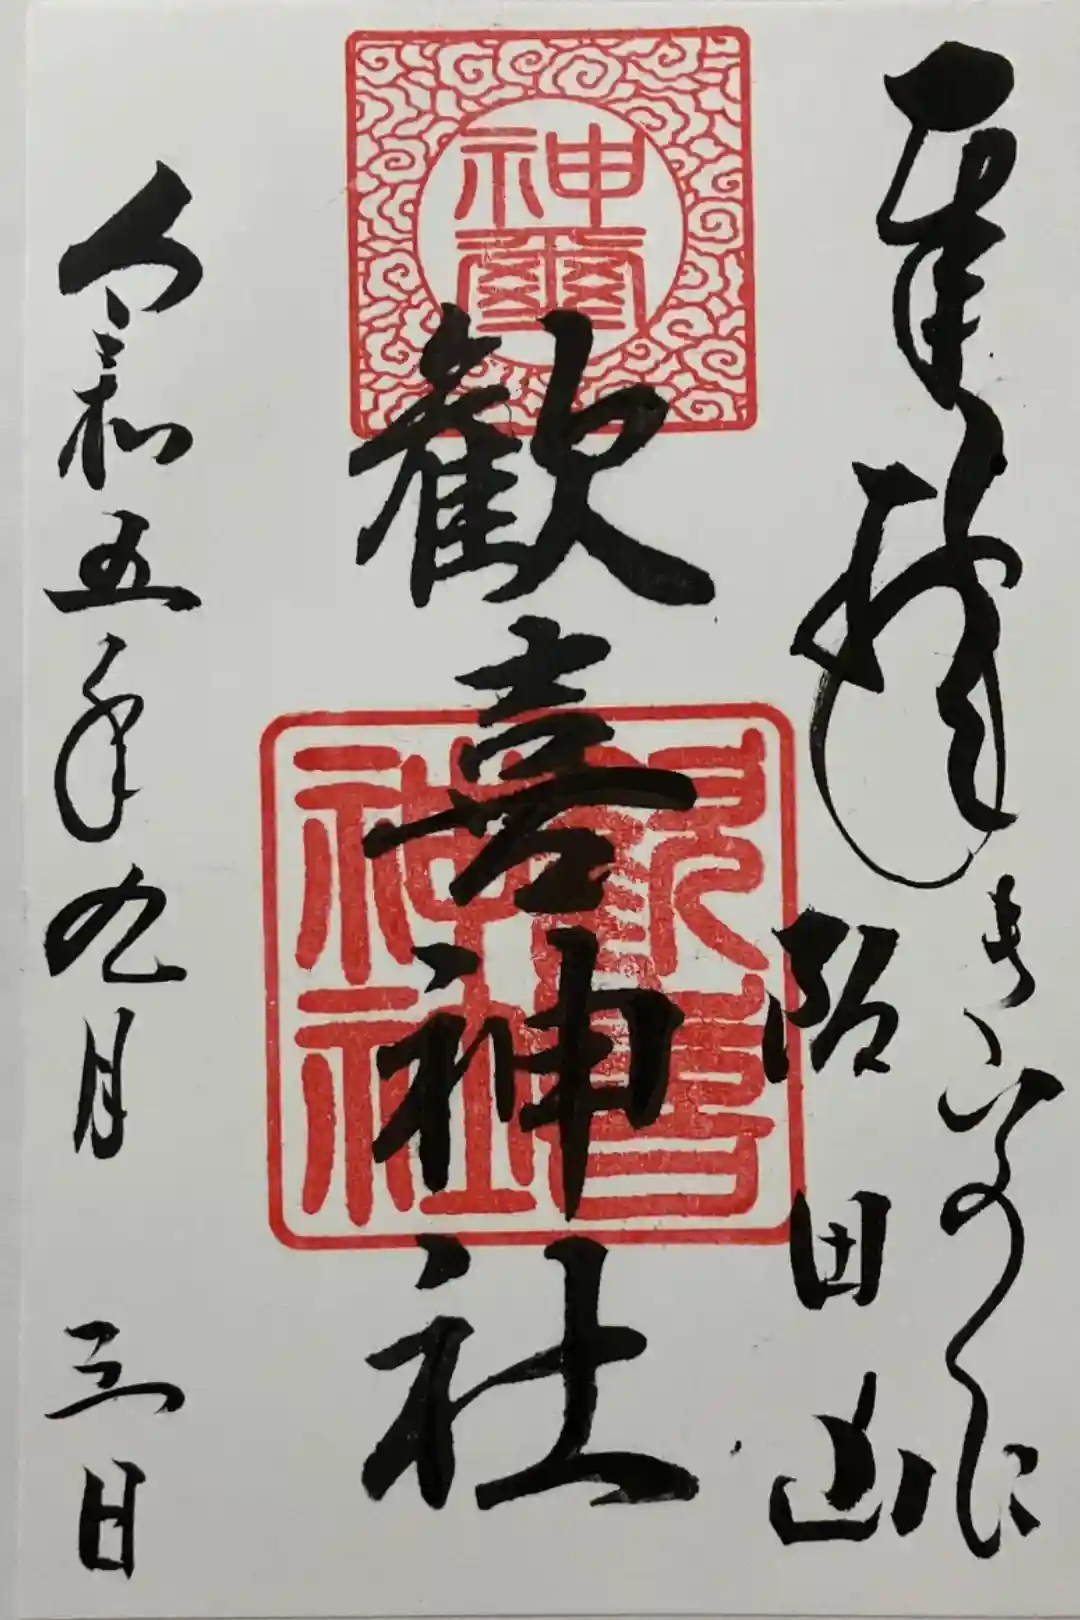 奉拝
きいのくに
阪田山
神璽
歓喜神社
歓喜神社
令和五年九月三日